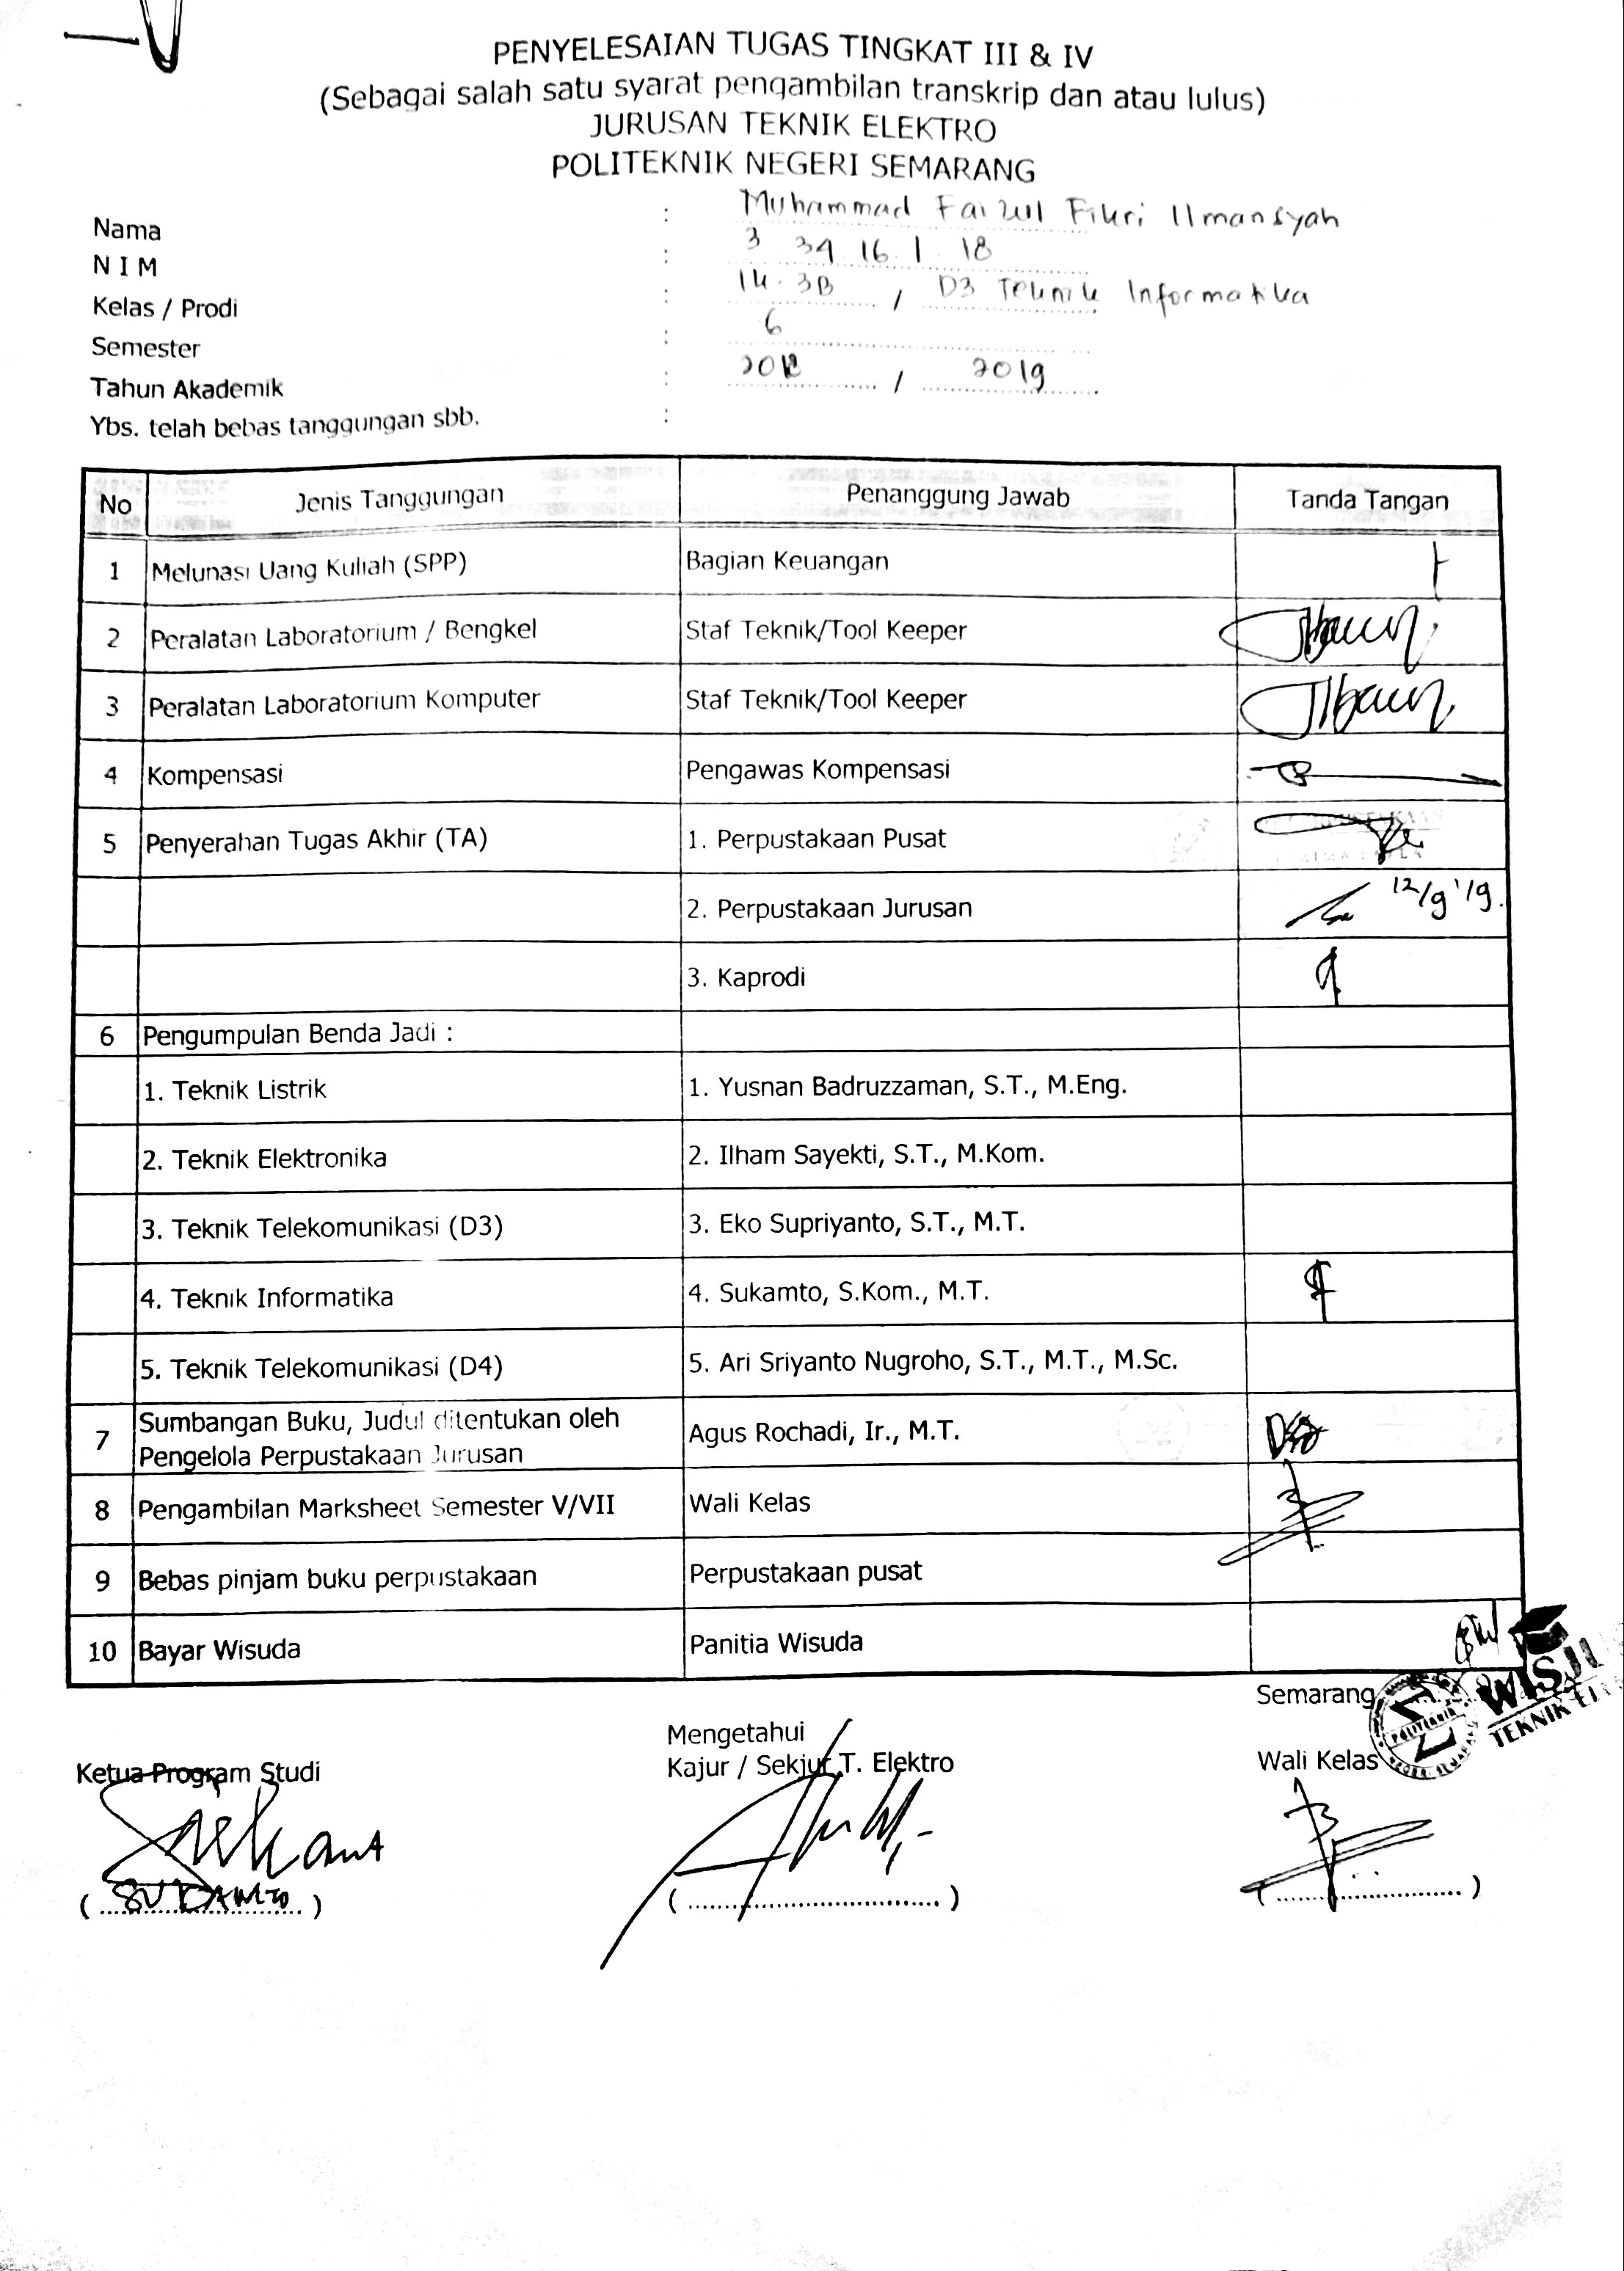 PENYELESAIAN TUGAS TINGKAT III & IV
(Sebagai salah satu syarat pengambilan transkrip dan atau lulus)
JURUSAN TEKNIK ELEKTRO
POLITEKNIK NEGERI SEMARANG
Nama : Muhammad Faizul Fikri Ilmansyah
N I M : 3 34 16 1 18
Kelas / Prodi : / D3 Teknik Informatika
Semester : 6
Tahun Akademik : 2018 / 2019
Ybs. telah bebas tanggungan sbb. :
No Jenis Tanggungan Penanggung Jawab Tanda Tangan
1 Melunasi Uang Kuliah (SPP) Bagian Keuangan
2 Peralatan Laboratorium / Bengkel Staf Teknik/Tool Keeper
3 Peralatan Laboratorium Komputer Staf Teknik/Tool Keeper
4 Kompensasi Pengawas Kompensasi
5 Penyerahan Tugas Akhir (TA) 1. Perpustakaan Pusat
2. Perpustakaan Jurusan 12/9 '19.
3. Kaprodi
6 Pengumpulan Benda Jadi :
1. Teknik Listrik 1. Yusnan Badruzzaman, S.T., M.Eng.
2. Teknik Elektronika 2. Ilham Sayekti, S.T., M.Kom.
3. Teknik Telekomunikasi (D3) 3. Eko Supriyanto, S.T., M.T.
4. Teknik Informatika 4. Sukamto, S.Kom., M.T.
5. Teknik Telekomunikasi (D4) 5. Ari Sriyanto Nugroho, S.T., M.T., M.Sc.
7 Sumbangan Buku, Judul ditentukan oleh Agus Rochadi, Ir., M.T.
Pengelola Perpustakaan Jurusan
8 Pengambilan Marksheet Semester V/VII Wali Kelas
9 Bebas pinjam buku perpustakaan Perpustakaan pusat
10 Bayar Wisuda Panitia Wisuda
Semarang
Mengetahui
Ketua Program Studi Kajur / Sekjur T. Elektro Wali Kelas
( SUKAMTO ) ( .................... ) ( .................... )